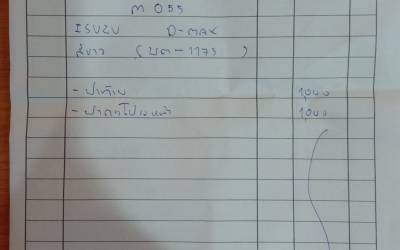 M 055
ISUZU D-MAX
สีขาว ( บต-1173 )
- ฝาท้าย 1,000
- ฝากระโปรงหน้า 1,000